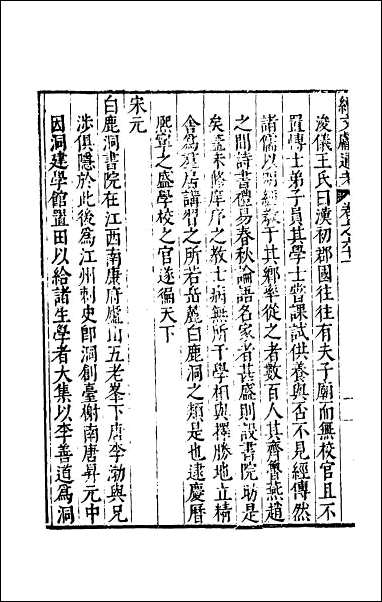 續文獻通考　卷之六十
浚儀王氏曰漢初郡國往往有夫子廟而無校官且不
置博士弟子員其學士嘗課試供養與否不見經傳然
諸儒以明經教于其鄉率從之者數百人其齊魯燕趙
之間詩書禮易春秋論語名家者甚盛則設書院助是
矣蓋未修庠序之教士病無所于學相與擇勝地立精
舍爲羣居講習之所若岳麓白鹿洞之類是也逮慶曆
熙寧之盛學校之官遂徧天下
宋元
白鹿洞書院在江西南康府廬山五老峯下唐李渤與兄
涉俱隱於此後爲江州刺史卽洞創臺榭南唐昇元中
因洞建學館置田以給諸生學者大集以李善道爲洞